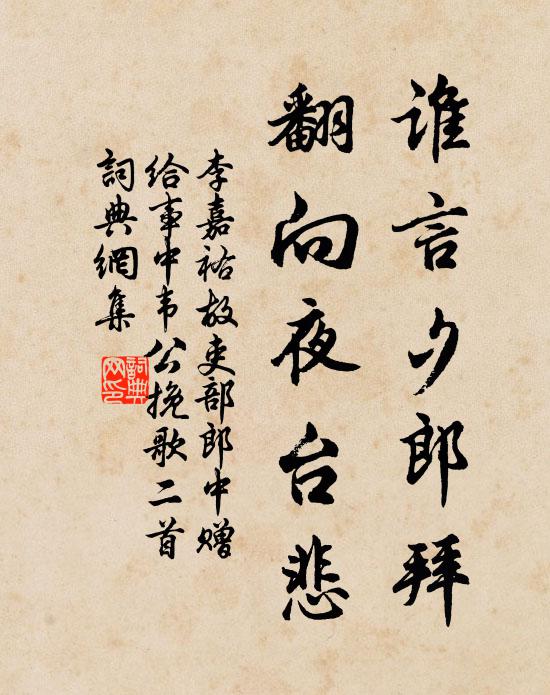 谁言夕郎拜
翻向夜台悲
李嘉祐故吏部郎中赠
给事中韦公挽歌二首
詞典網集
詞典
网印